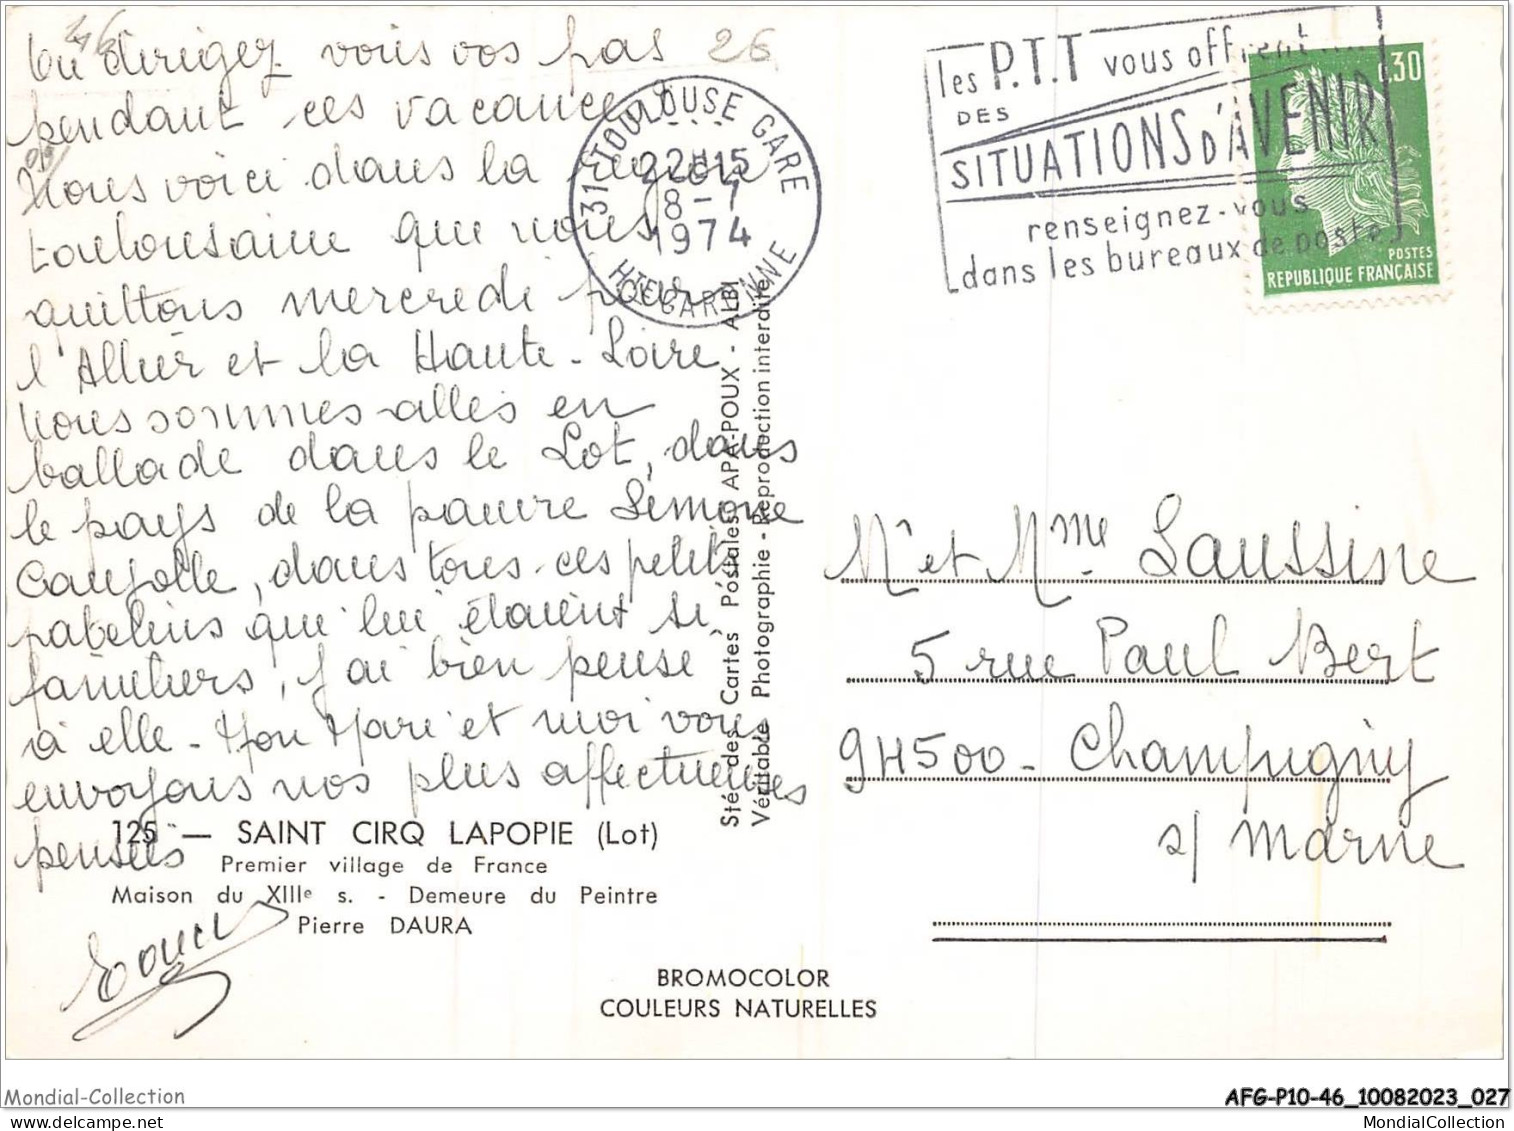 Où dirigez vous vos pas
pendant ces vacances ?
Nous voici dans la région
toulousaine que nous
quittons mercredi pour
l'Allier et la Haute-Loire
nous sommes allés en
ballade dans le Lot, dans
le pays de la pauvre Simone
dans tous ces petits
patelins qui lui étaient si
familiers, j'ai bien pensé
à elle - Mon Mari et moi vous
envoyons nos plus affectueuses
pensées
26
31 TOULOUSE GARE
22H15
8-7
1974
HTE GARONNE
les P.T.T vous offrent
DES
SITUATIONS D'AVENIR
renseignez-vous
dans les bureaux de poste
30
POSTES
REPUBLIQUE FRANÇAISE
Sté des Cartes Postales APA-POUX - ALBI
Véritable Photographie - Reproduction interdite
Mr et Mme Laussine
5 rue Paul Bert
94500 - Champigny
s/ Marne
125 — SAINT CIRQ LAPOPIE (Lot)
Premier village de France
Maison du XIIIe s. - Demeure du Peintre
Pierre DAURA
BROMOCOLOR
COULEURS NATURELLES
Mondial-Collection
AFG-P10-46_10082023_027
MondialCollection